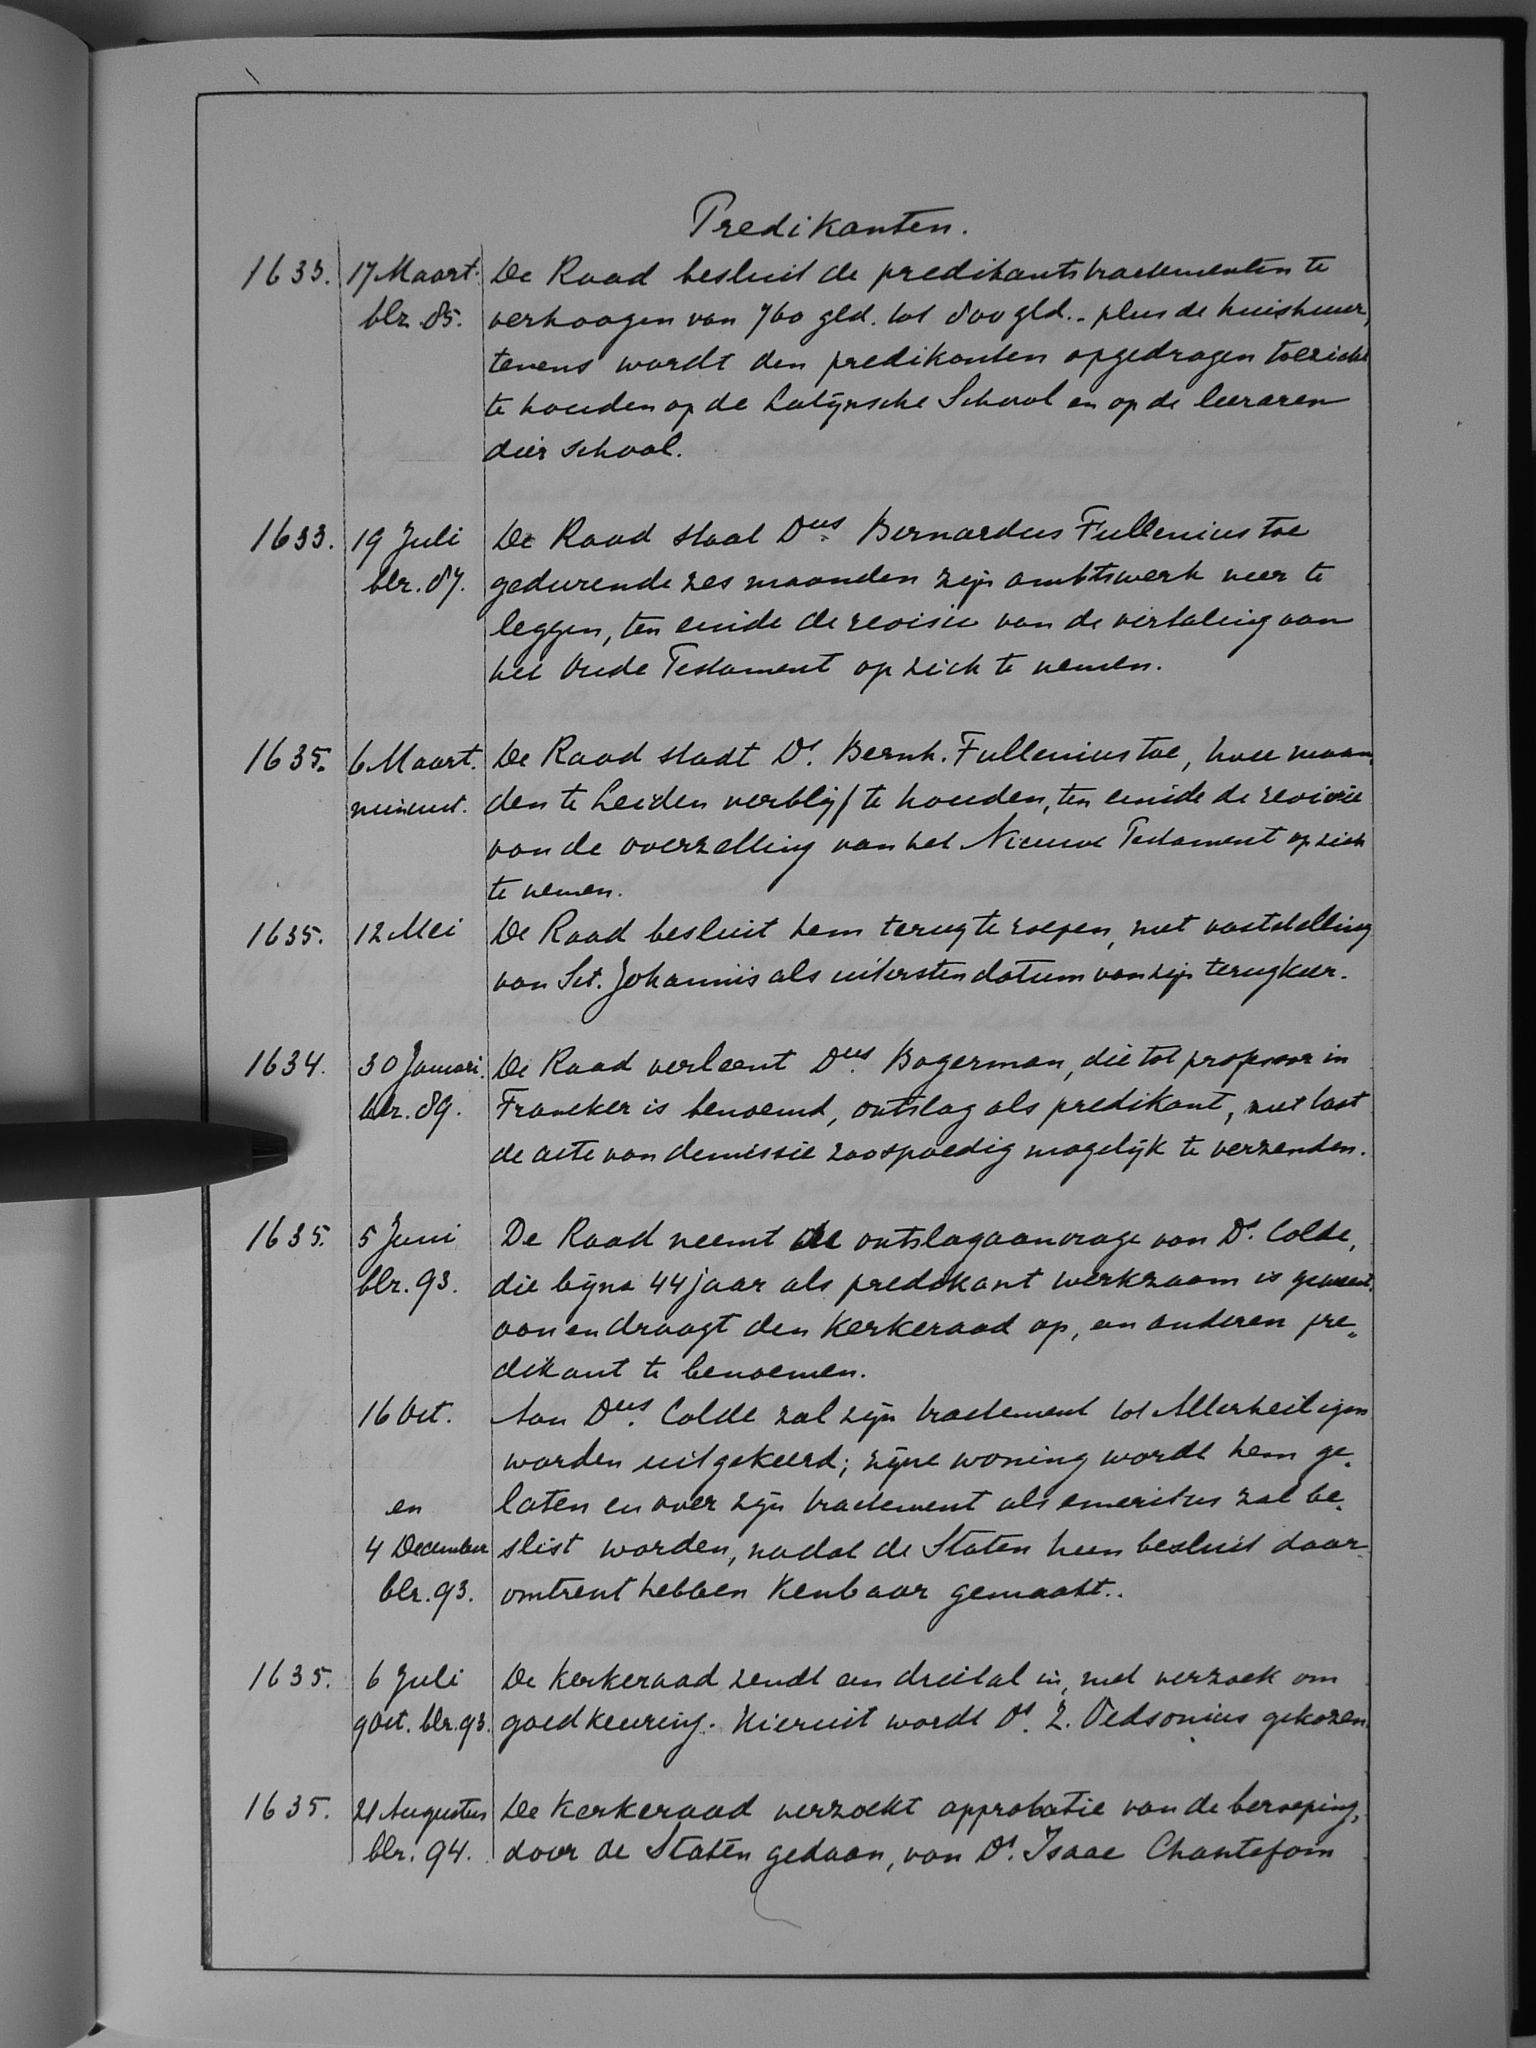 Predikanten.
1633. 17 Maart. De Raad besluit de predikantstractementen te
blz. 85. verhoogen van 760 gld. tot 800 gld. - plus de huishuur,
tevens wordt den predikanten opgedragen toezicht
te houden op de Latijnsche School en op de leeraren
dier school.
1633. 19 Juli De Raad staat Dus. Bernardus Fullenius toe
blz. 87. gedurende zes maanden zijn ambtswerk neer te
leggen, ten einde de revisie van de vertaling van
het Oude Testament op zich te nemen.
1635. 6 Maart. De Raad stadt Ds. Bernh. Fullenius toe, twee maan
minuut. den te Leiden verblijf te houden, ten einde de revisie
van de overzetting van het Nieuwe Testament op zich
te nemen.
1635. 12 Mei De Raad besluit hem terug te roepen, met vaststelling
van Sct. Johannis als uitersten datum van zijn terugkeer.
1634. 30 Januari. De Raad verleent Dus. Bogerman, die tot professor in
blz. 89. Franeker is benoemd, ontslag als predikant, met last
de acte van demissie zoospoedig mogelijk te verzenden.
1635. 5 Juni De Raad neemt de ontslagaanvrage van Ds. Colde,
blz. 93. die bijna 44 jaar als predikant werkzaam is geweest,
aan en draagt den Kerkeraad op, een anderen pre„
dikant te benoemen.
16 Oct. Aan Dus. Colde zal zijn tractement tot Allerheiligen
worden uitgekeerd; zijne woning wordt hem ge-
en laten en over zijn tractement als emeritus zal be-
4 December slist worden, nadat de Staten hun besluit daar
blz. 93. omtrent hebben kenbaar gemaakt.
1635. 6 Juli De Kerkeraad zendt een drietal in, met verzoek om
9 Oct. blz. 93. goedkeuring. Hieruit wordt Ds. Z. Oedsonius gekozen.
1635. 21 Augustus De Kerkeraad verzoekt approbatie van de beroeping,
blz. 94. door de Staten gedaan, van Ds. Isaac Chantefoin